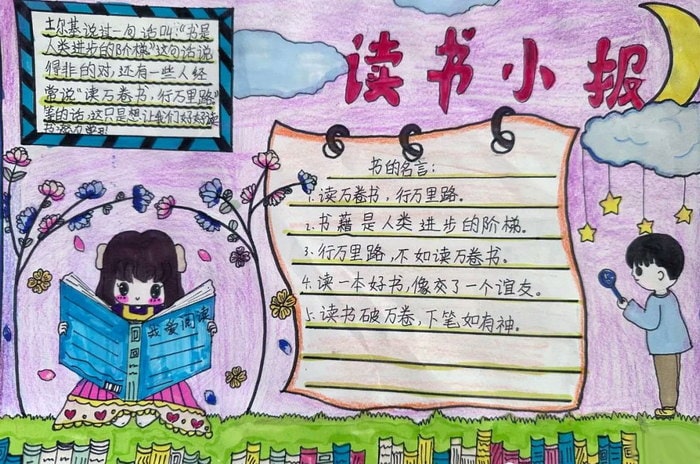 读书小报
土尔基说过一句话叫:“书是
人类进步的阶梯”这句话说
得非的对,还有一些人经
常说“读万卷书,行万里路”
等的话,这只是想让我们好好读
书的名言:
1.读万卷书,行万里路。
2.书藉是人类进步的阶梯。
3.行万里路,不如读万卷书。
4.读一本好书,像交了一个谊友。
5.读书破万卷,下笔如有神。
我爱阅读